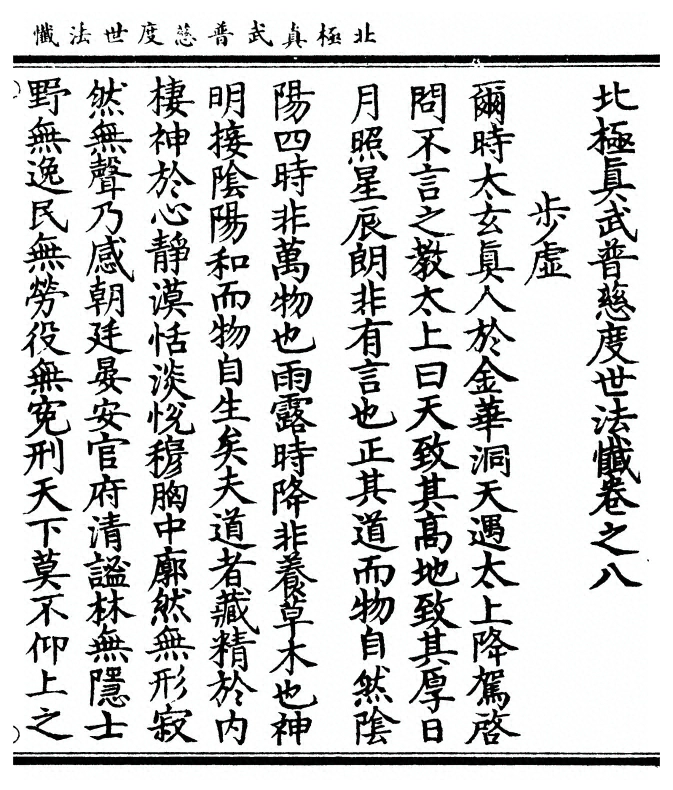 北極真武普慈度世法懺
北極真武普慈度世法懺卷之八
步虛
爾時太玄真人於金華洞天遇太上降駕啓
問不言之教太上曰天致其高地致其厚日
月照星辰朗非有言也正其道而物自然陰
陽四時非萬物也雨露時降非養草木也神
明接陰陽和而物自生矣夫道者藏精於內
棲神於心靜漠恬淡悅穆胸中廓然無形寂
然無聲乃感朝廷晏安官府清謐林無隱士
野無逸民無勞役無冤刑天下莫不仰上之